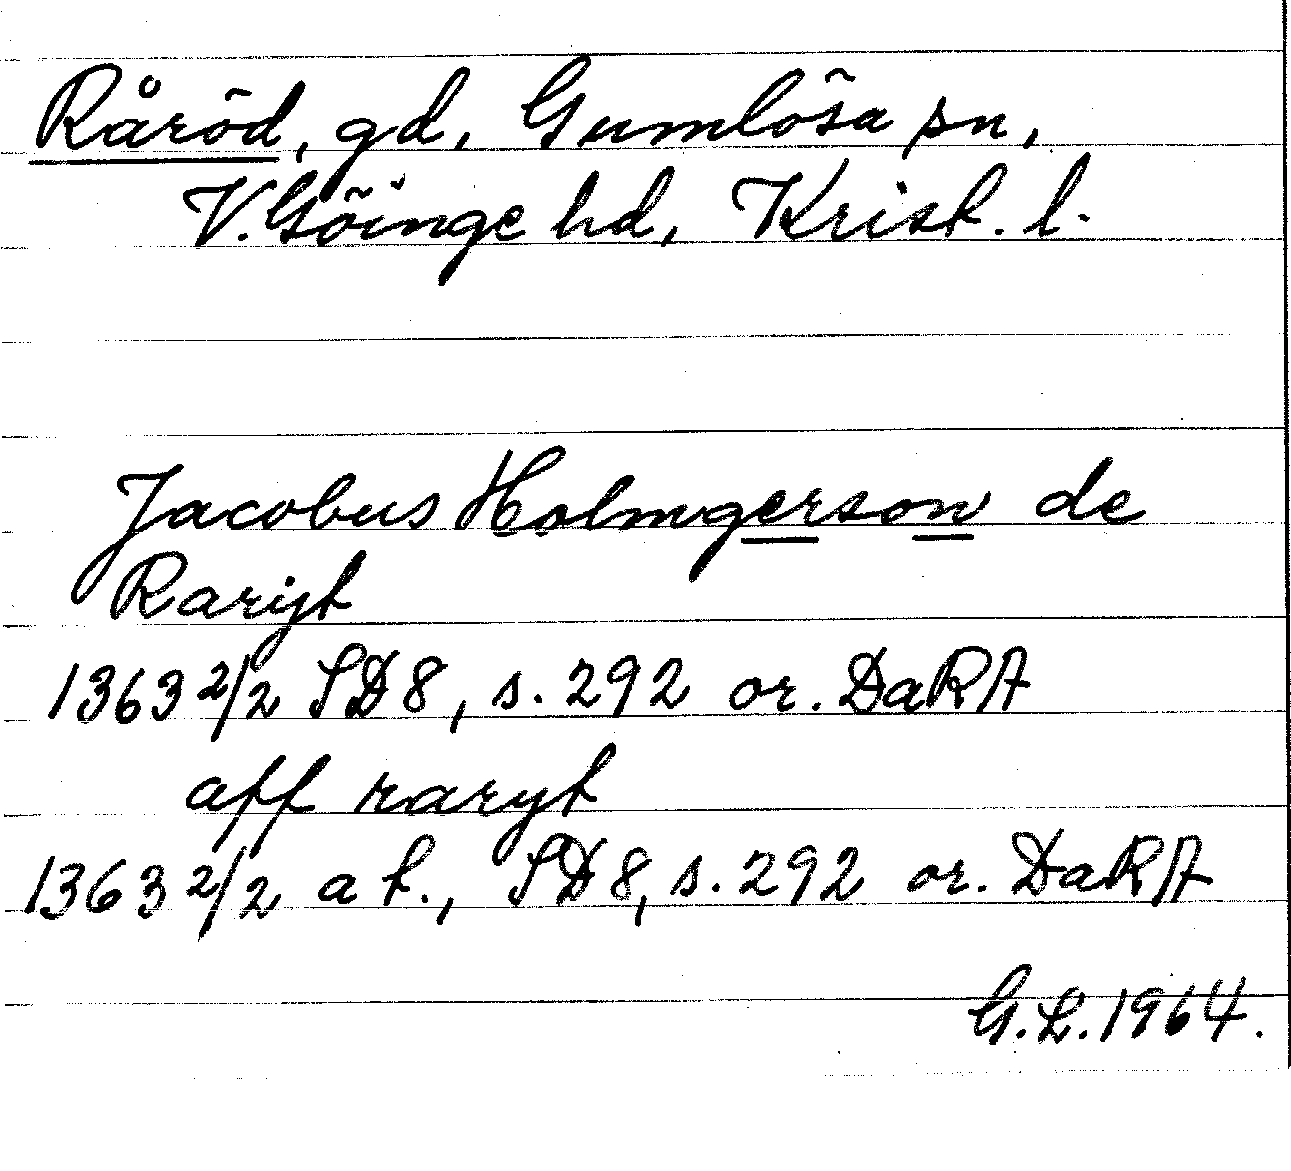 Råröd, gd, Gumlösa sn,
V. Göinge hd, Krist. l.
Jacobus Holmgerson de
Raryt
1363 2/2 SD 8, s. 292 or. DaRA
aff raryt
1363 2/2 a t., SD 8, s. 292 or. DaRA
G.L. 1964.